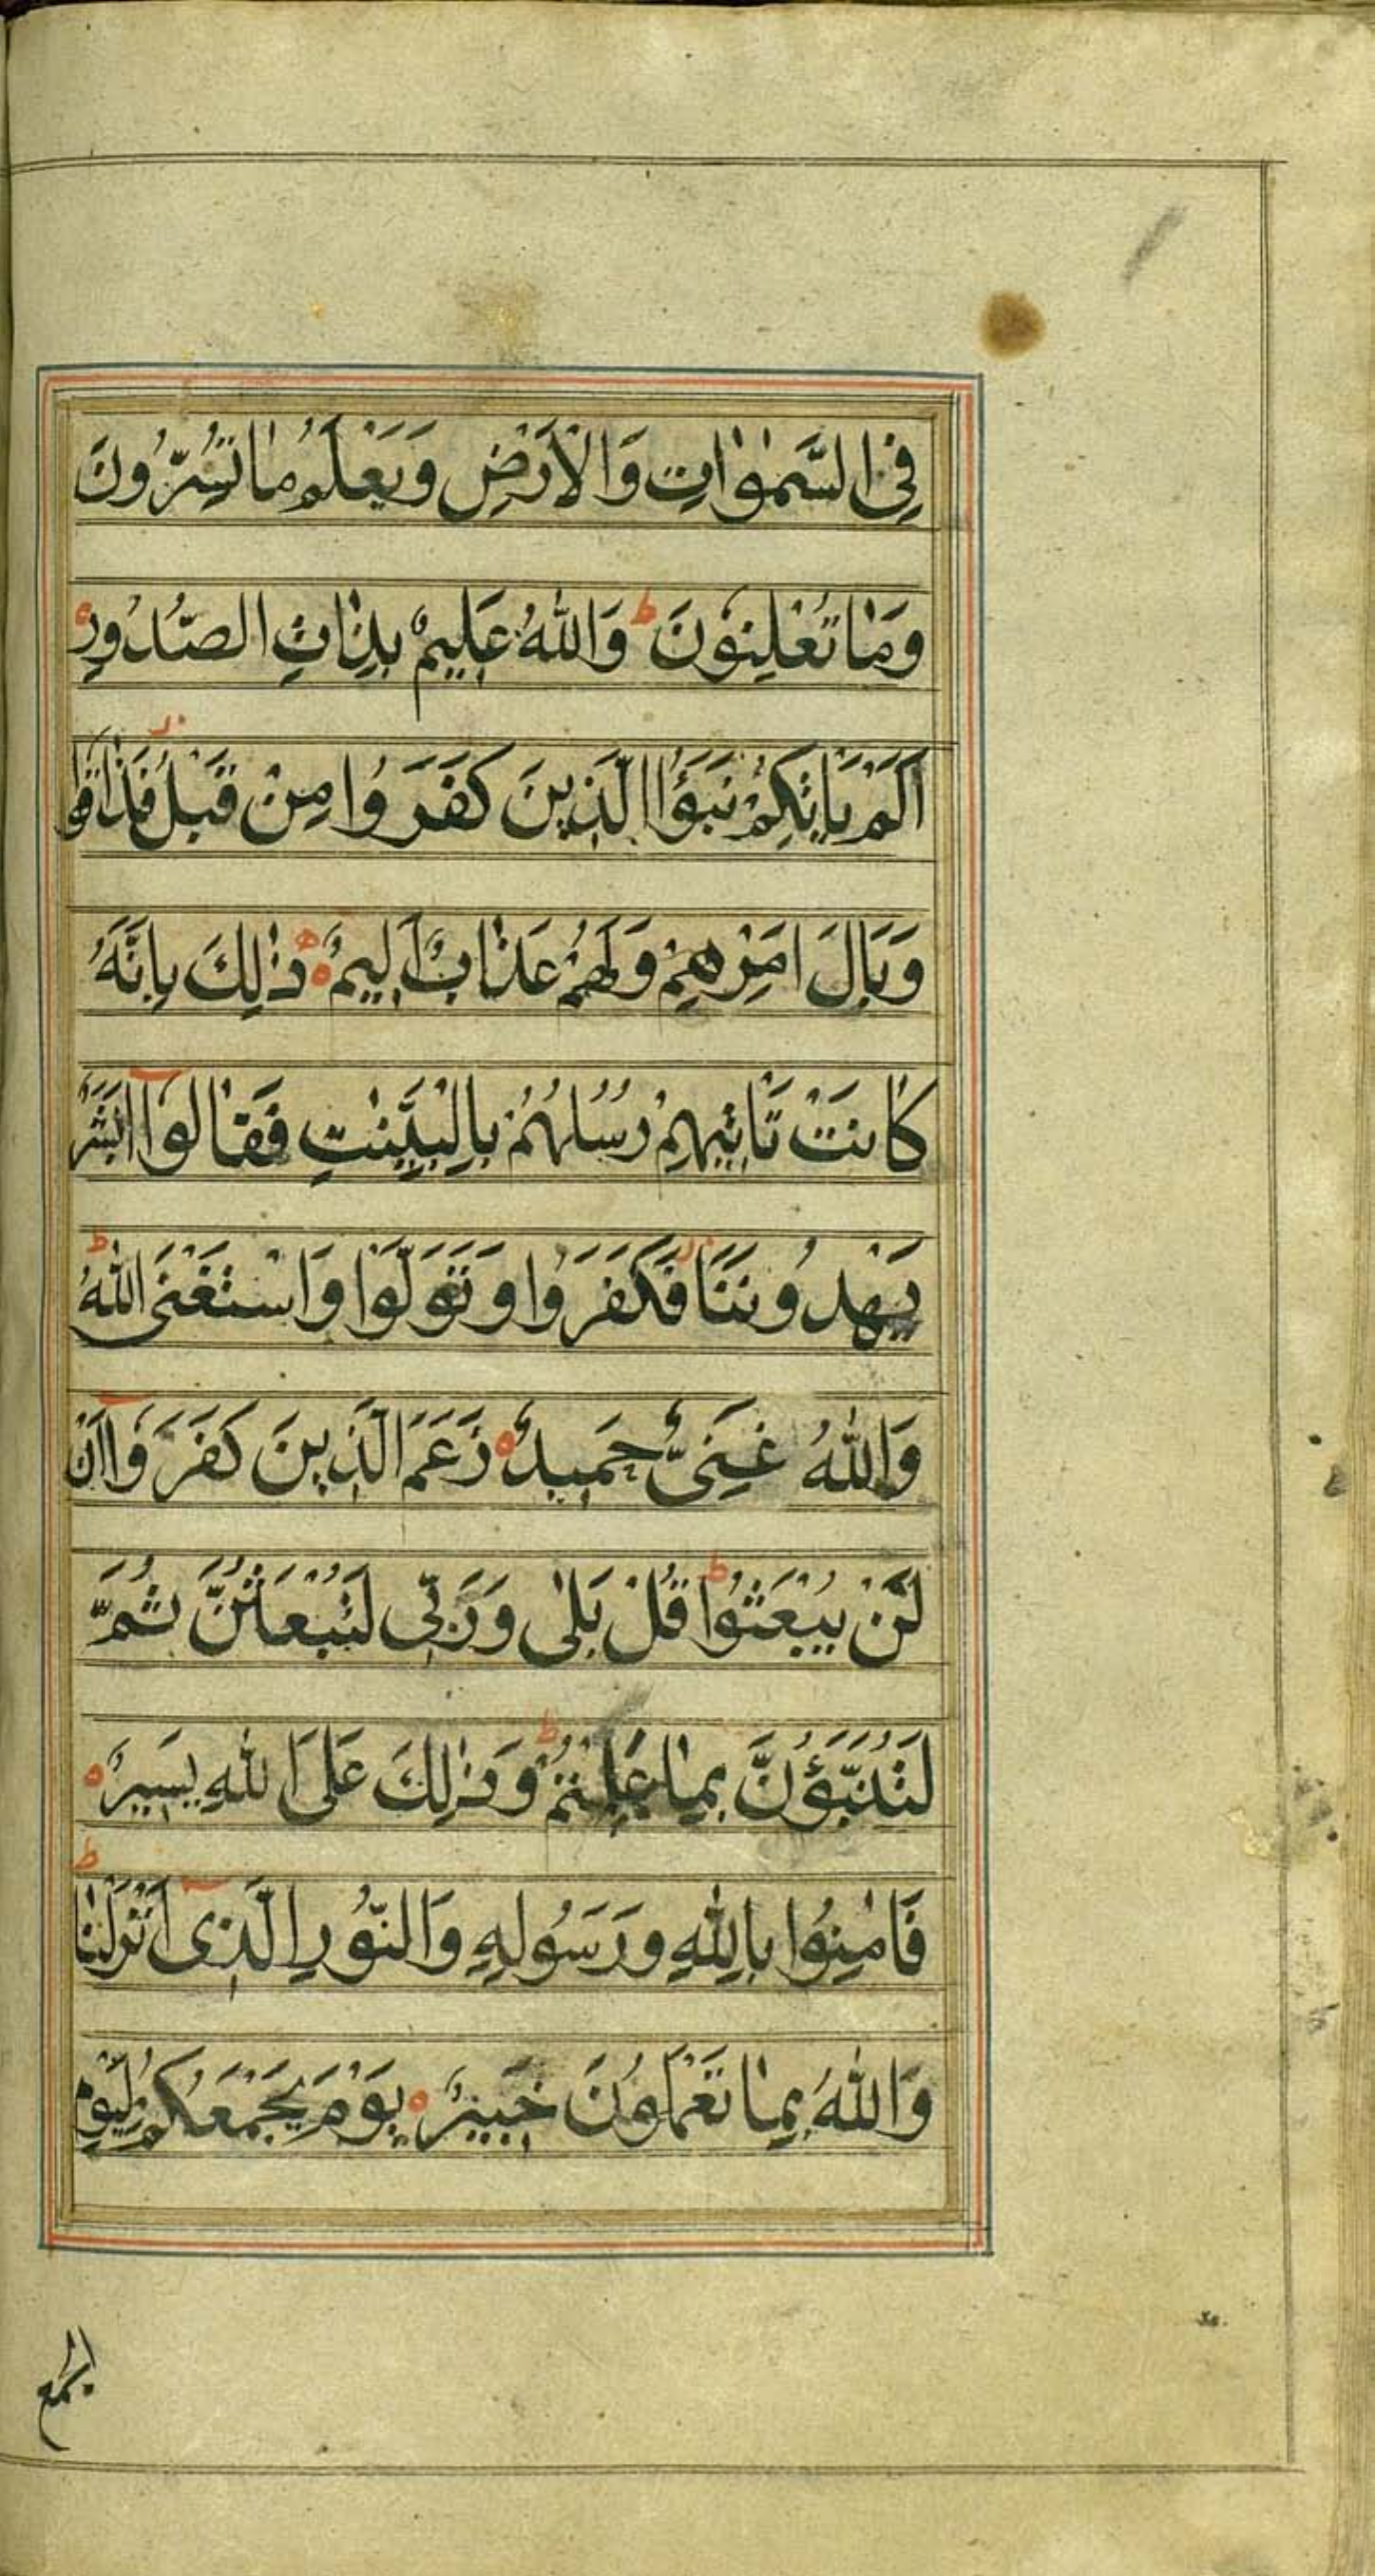 فِى السَّمٰوٰاتِ وَالْاَرْضِ وَيَعْلَمُ مٰا تُسِرُّونَ
وَمٰا تُعْلِنُونَ ط وَاللّٰهُ عَلِيمٌ بِذٰاتِ الصُّدُورِ
اَلَمْ يَاْتِكُمْ نَبَؤُا الَّذِينَ كَفَرُوا مِنْ قَبْلُ فَذٰاقُوا
وَبٰالَ اَمْرِهِمْ وَلَهُمْ عَذٰابٌ اَلِيمٌ ذٰلِكَ بِاَنَّهُ
كٰانَتْ تَاْتِيهِمْ رُسُلُهُمْ بِالْبَيِّنٰتِ فَقٰالُوٓا اَبَشَرٌ
يَهْدُونَنَا فَكَفَرُوا وَتَوَلَّوْا وَاسْتَغْنَى اللّٰهُ ط
وَاللّٰهُ غَنِىٌّ حَمِيدٌ زَعَمَ الَّذِينَ كَفَرُوٓا اَنْ
لَنْ يُبْعَثُوا ط قُلْ بَلٰى وَرَبِّى لَتُبْعَثُنَّ ثُمَّ
لَتُنَبَّؤُنَّ بِمٰا عَمِلْتُمْ ط وَذٰلِكَ عَلَى اللّٰهِ يَسِيرٌ
فَاٰمِنُوا بِاللّٰهِ وَرَسُولِهِ وَالنُّورِ الَّذِىٓ اَنْزَلْنٰا ط
وَاللّٰهُ بِمٰا تَعْمَلُونَ خَبِيرٌ يَوْمَ يَجْمَعُكُمْ لِيَوْمِ
الجمع